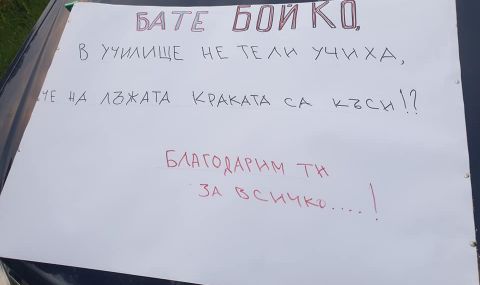 БАТЕ БОЙКО,
В УЧИЛИЩЕ НЕ ТЕЛИ УЧИХА,
ЧЕ НА ЛЪЖАТА КРАКАТА СА КЪСИ!?
БЛАГОДАРИМ ТИ
ЗА ВСИЧКО....!